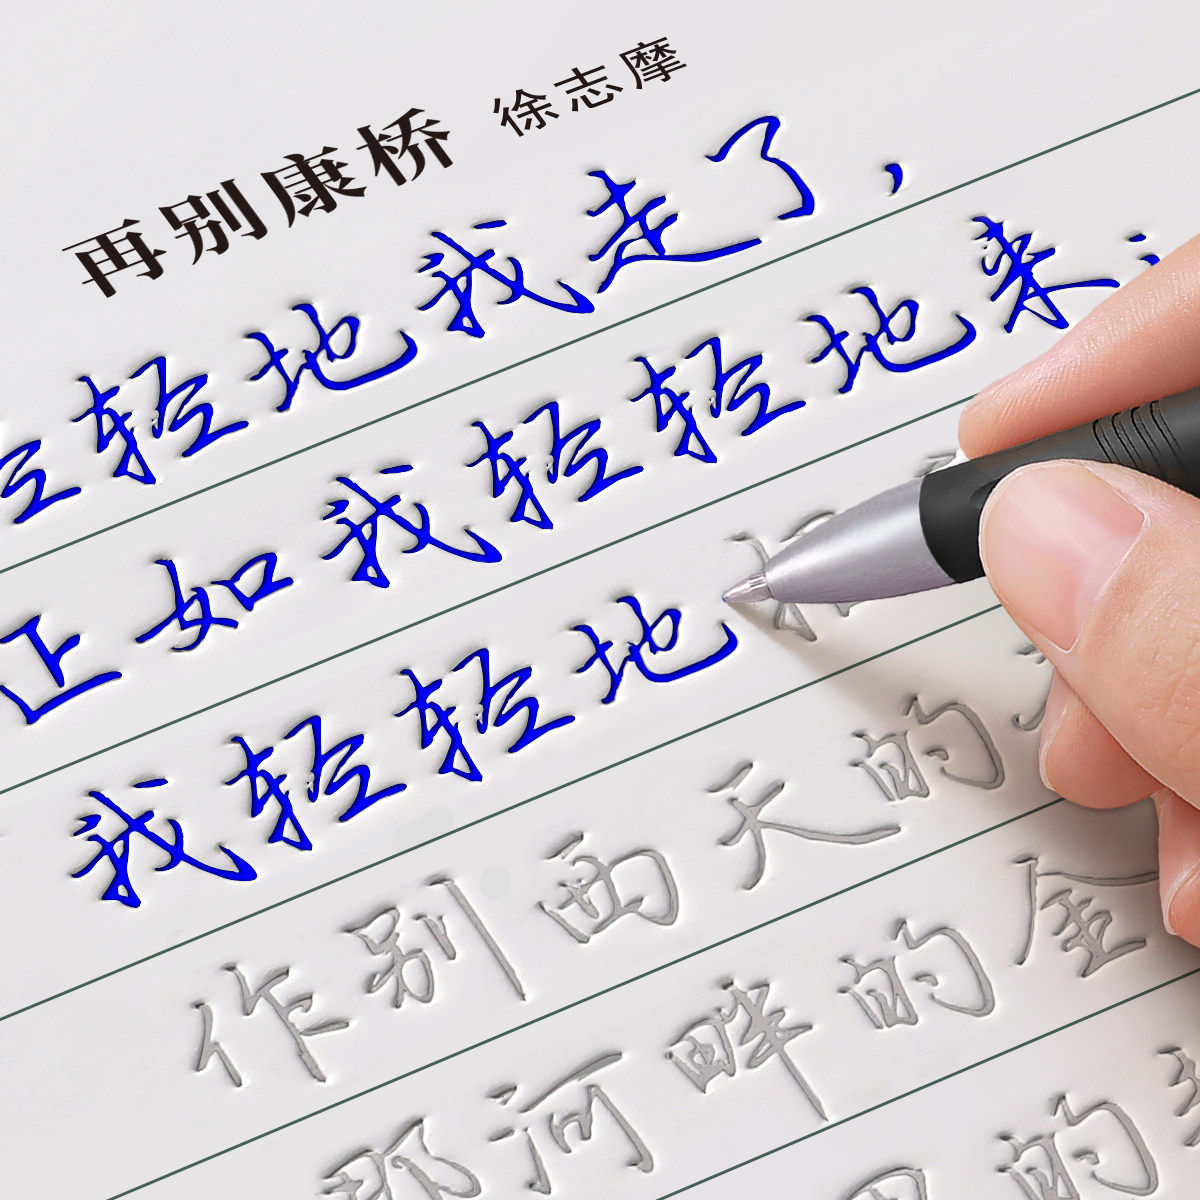 再别康桥 徐志摩
轻轻地我走了，
正如我轻轻地来
我轻轻地招
作别西天的
那河畔的金
的